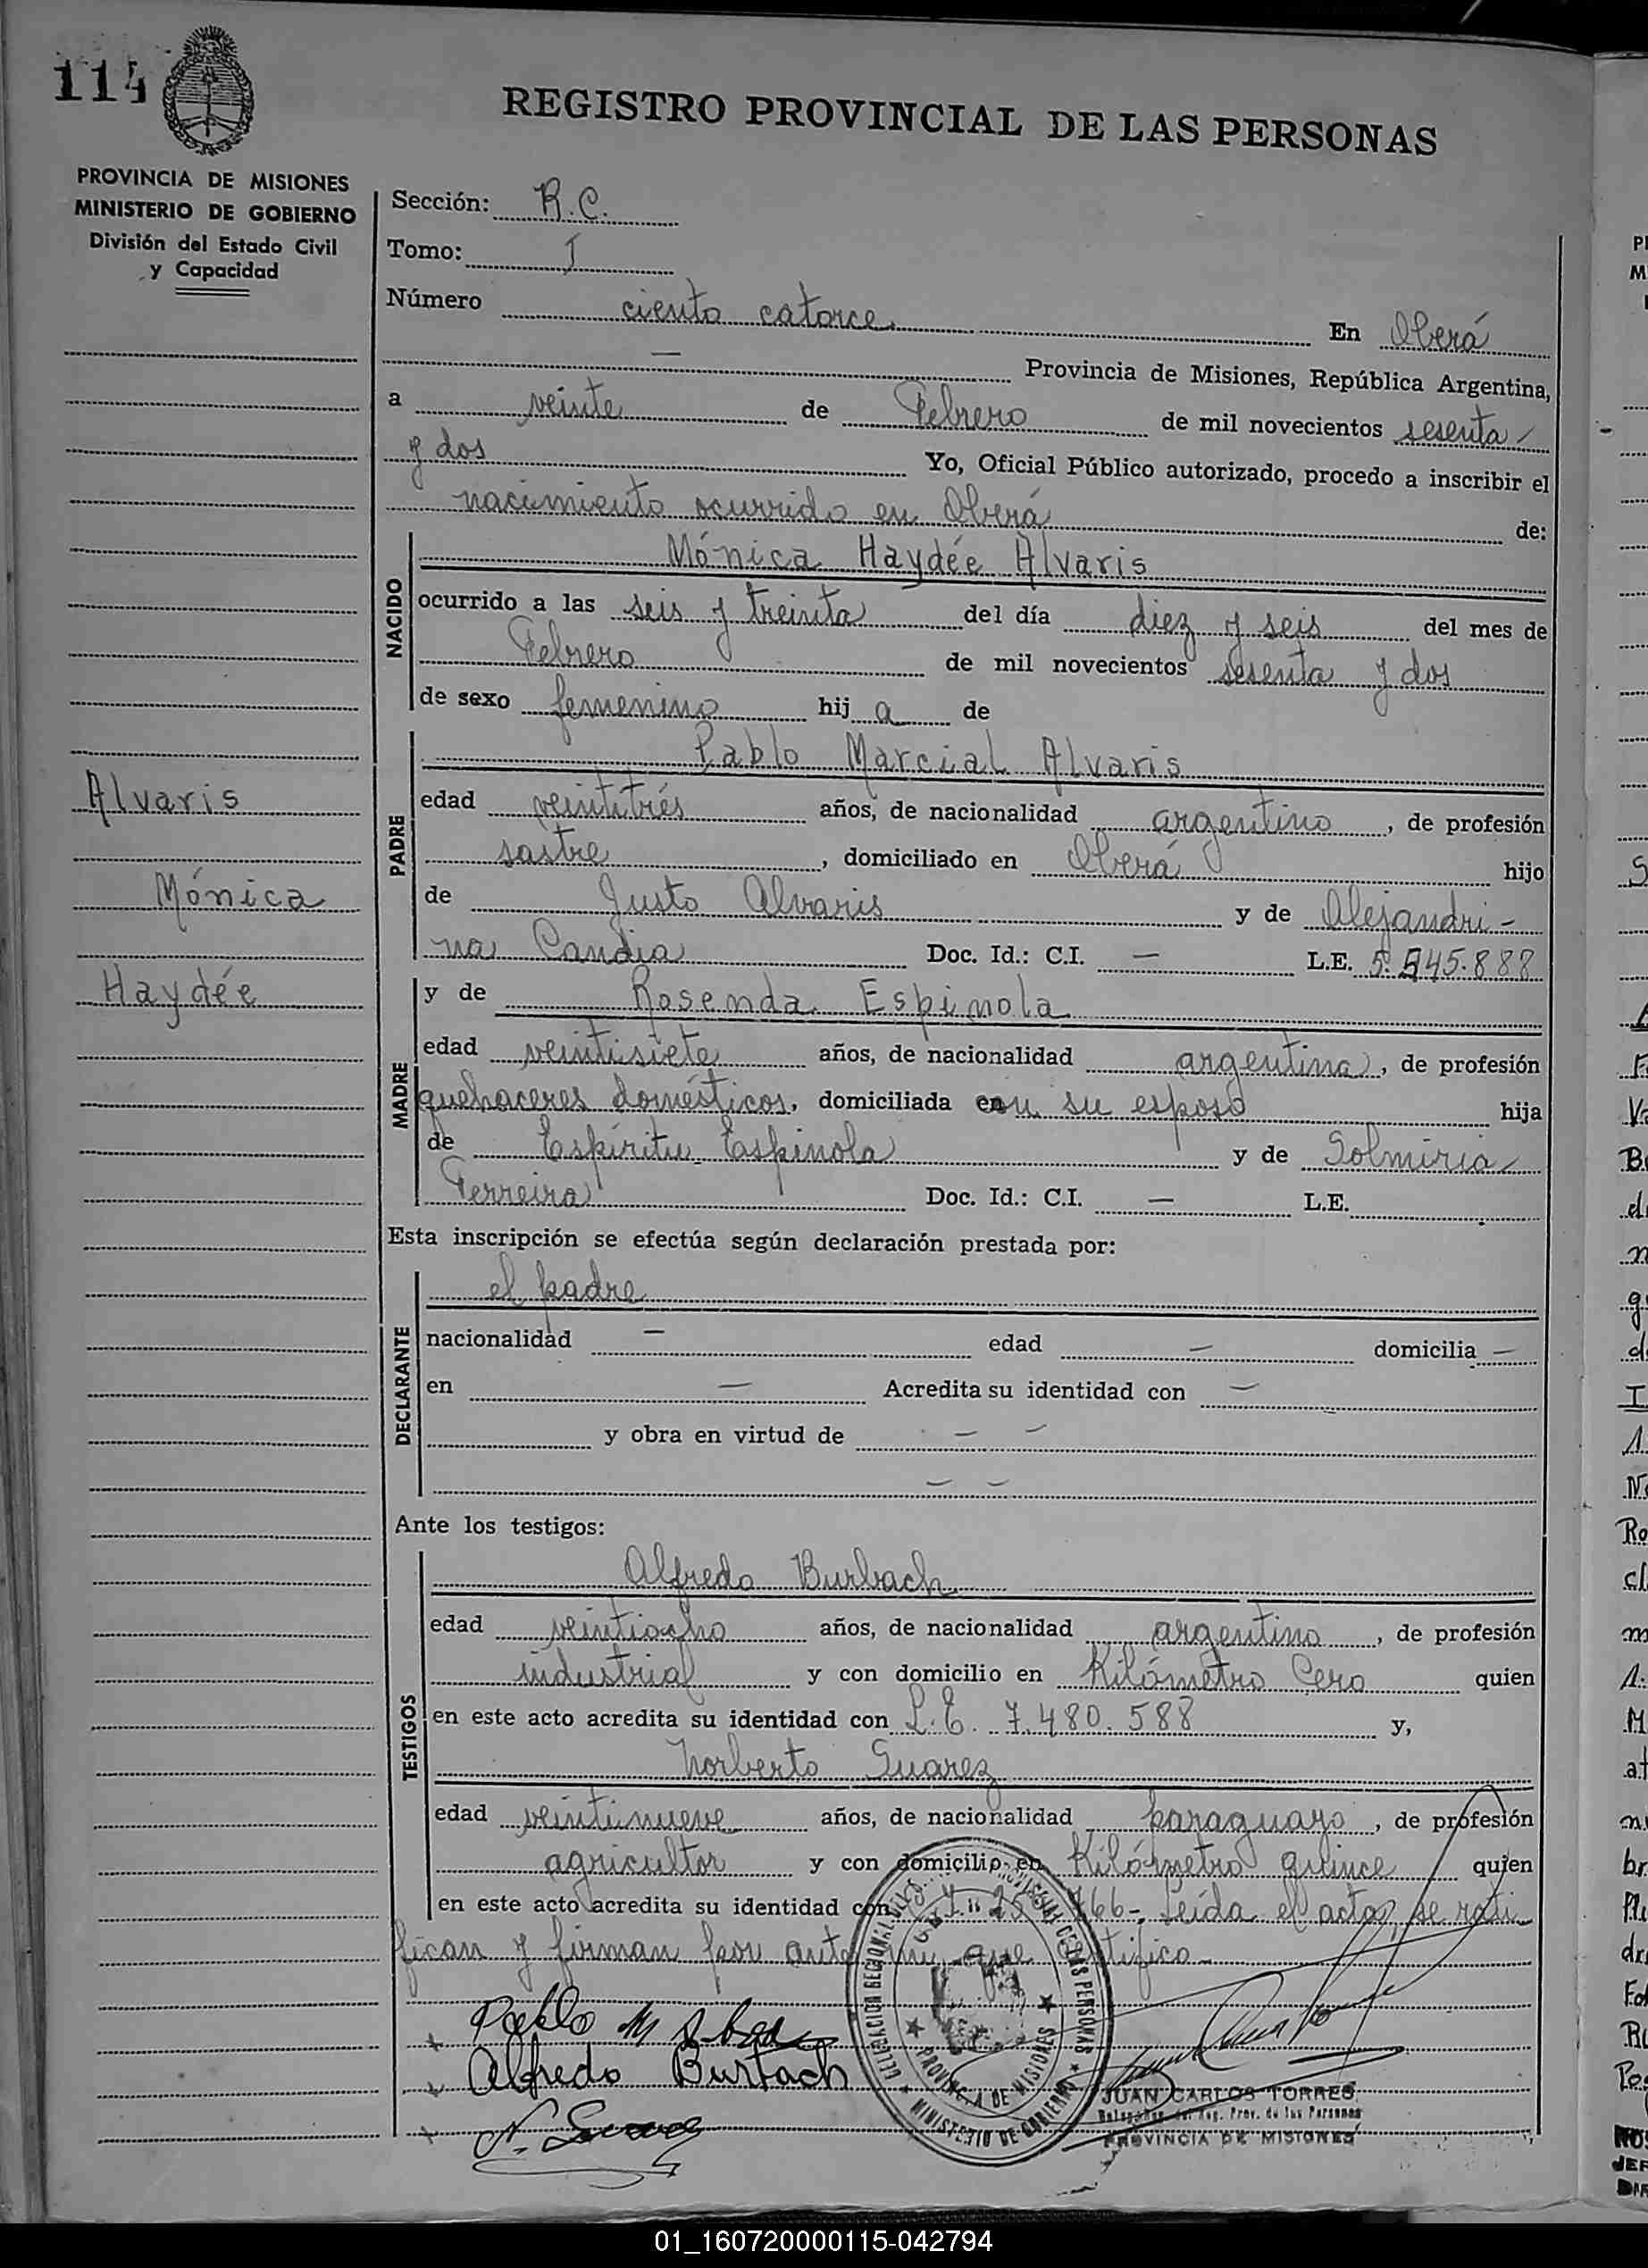 114
REGISTRO PROVINCIAL DE LAS PERSONAS
PROVINCIA DE MISIONES
MINISTERIO DE GOBIERNO
División del Estado Civil
y Capacidad
Sección: R.C.
Tomo: I
Número ciento catorce En Oberá
— Provincia de Misiones, República Argentina,
a veinte de Febrero de mil novecientos sesenta
y dos Yo, Oficial Público autorizado, procedo a inscribir el
nacimiento ocurrido en Oberá de:
NACIDO
Mónica Haydée Alvaris
ocurrido a las seis y treinta del día diez y seis del mes de
Febrero de mil novecientos sesenta y dos
de sexo femenino hij a de
PADRE
Pablo Marcial Alvaris
edad veintitrés años, de nacionalidad argentino, de profesión
sastre, domiciliado en Oberá hijo
de Justo Alvaris y de Alejandri-
na Candia Doc. Id.: C.I. — L.E. 5.945.888
Alvaris
Mónica
Haydée
MADRE
y de Rosenda Espinola
edad veintisiete años, de nacionalidad argentina, de profesión
quehaceres domésticos, domiciliada con su esposo hija
de Espíritu Espinola y de Solmiria
Ferreira Doc. Id.: C.I. — L.E.
Esta inscripción se efectúa según declaración prestada por:
DECLARANTE
el padre
nacionalidad — edad — domicilia —
en — Acredita su identidad con —
y obra en virtud de — —
— —
Ante los testigos:
TESTIGOS
Alfredo Burbach
edad veintiocho años, de nacionalidad argentino, de profesión
industrial y con domicilio en Kilómetro Cero quien
en este acto acredita su identidad con L.E. 7.480.588 y,
Norberto Suarez
edad veintinueve años, de nacionalidad paraguayo, de profesión
agricultor y con domicilio en Kilómetro quince quien
en este acto acredita su identidad con 766-. Leída el acta, se rati
fican y firman por ante mi que certifico-
Pablo M
Alfredo Burbach
N. Suarez
DELEGACION REGIONAL PROVINCIAL DE LAS PERSONAS
PROVINCIA DE MISIONES
MINISTERIO DE GOBIERNO
JUAN CARLOS TORRES
Reg. Prov. de las Personas
PROVINCIA DE MISIONES
01_160720000115-042794